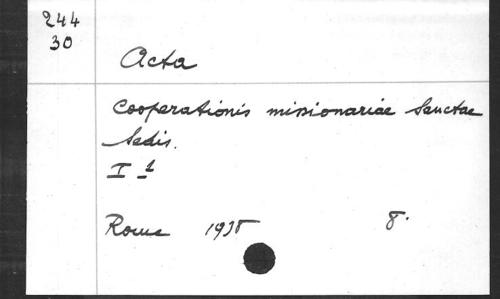 244
30
Acta
Cooperationis missionariae Sanctae
Sedis.
I 1
Roma 1935 8°